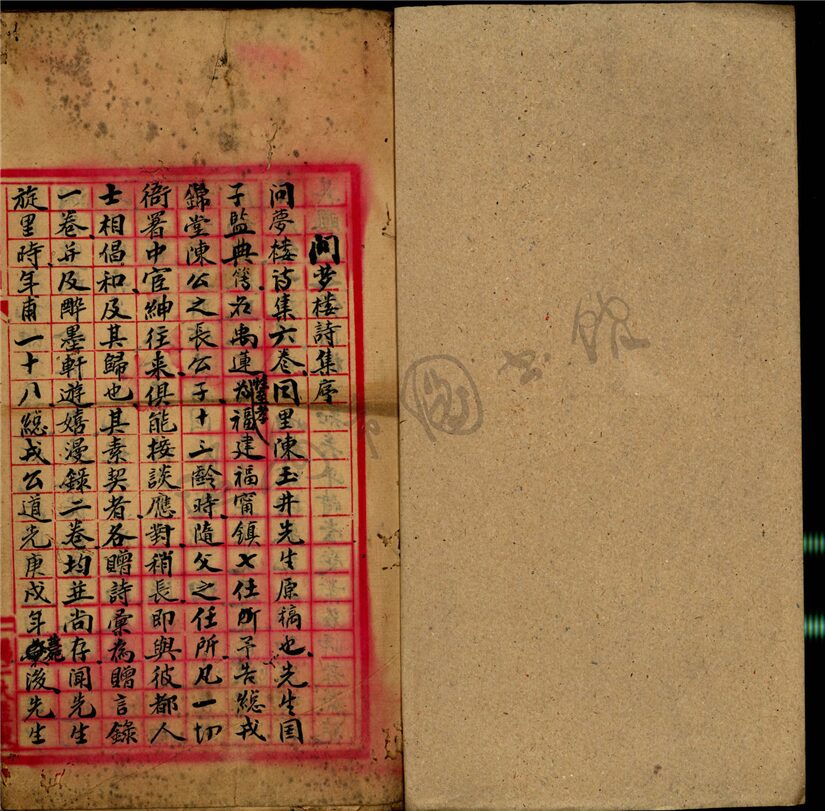 問梦楼詩集序
问夢楼诗集六卷同里陳玉井先生原稿也先生国
子監典簿名禹連为福建福甯鎮大任所予告總戎
錦堂陳公之長公子十二齡時隨父之任所凡一切
衙署中宦紳往来俱能接談應對稍長即與彼都人
士相倡和及其歸也其素契者各贈詩彙為贈言錄
一卷并及醉墨軒遊嬉漫錄二卷均並尚存聞先生
旋里時年甫一十八總戎公道光庚戌年薨後先生
圖书馆